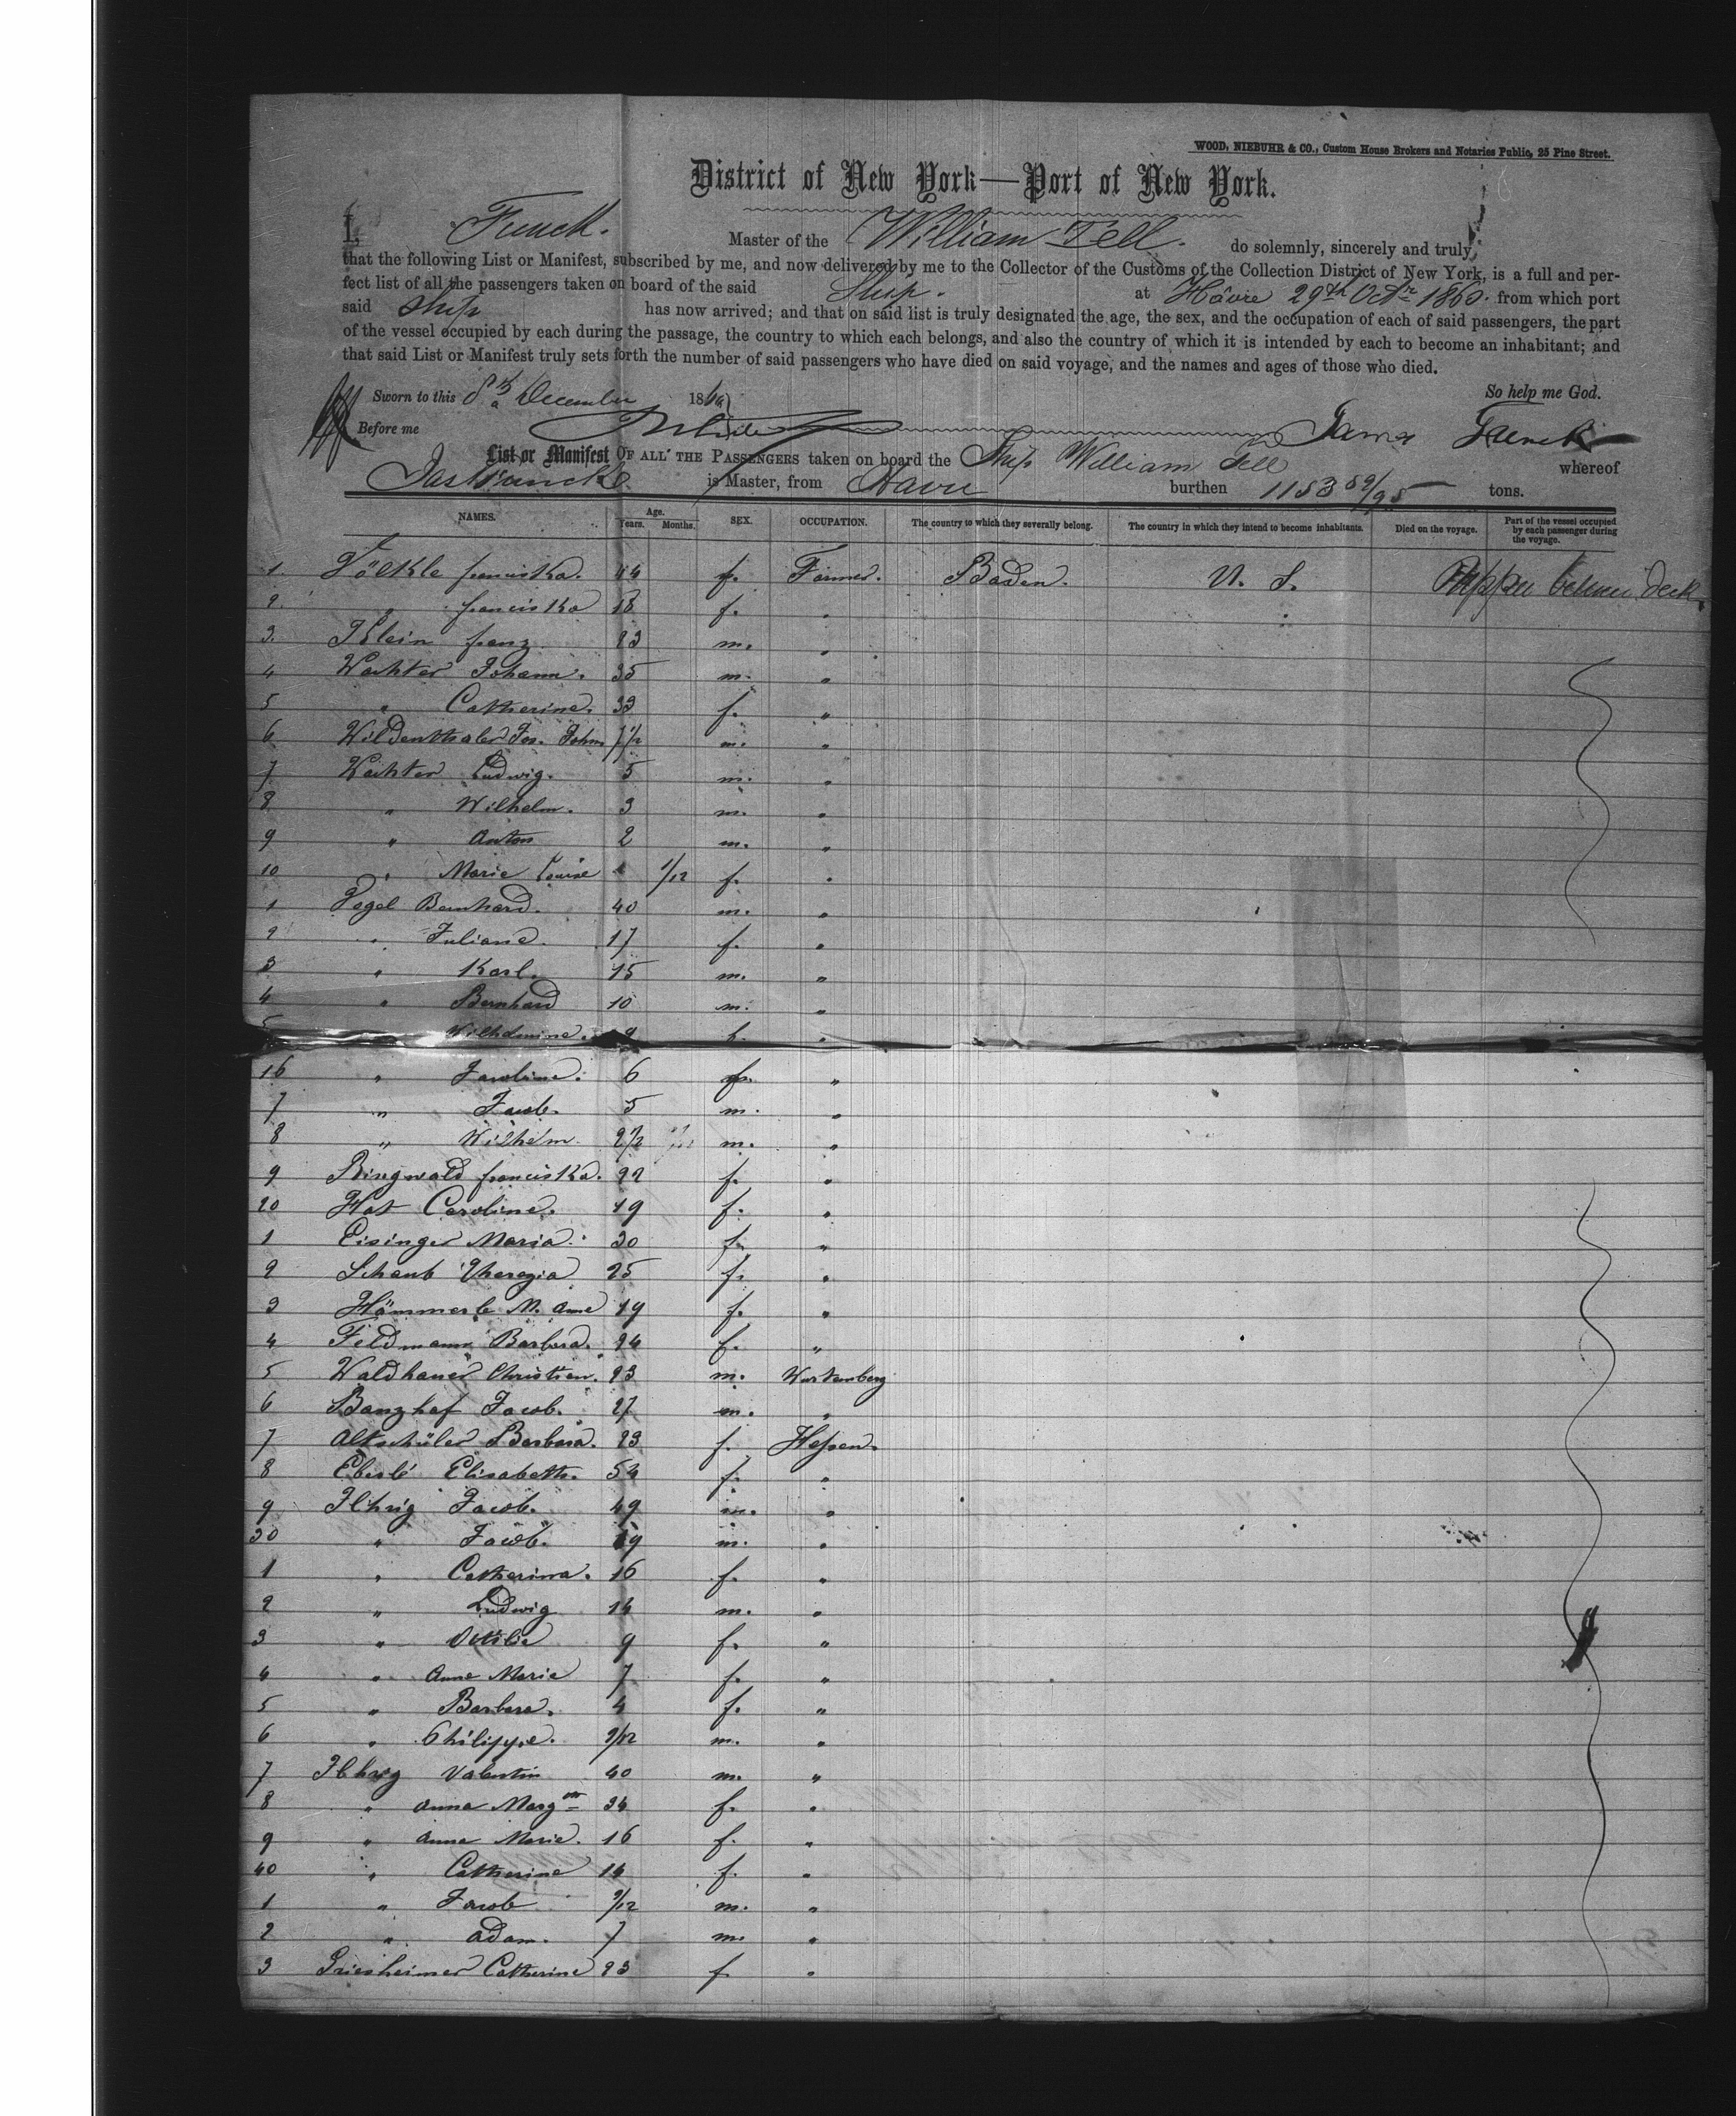 WOOD, NIEBUHR & CO., Custom House Brokers and Notaries Public, 25 Pine Street.
District of New York—Port of New York.
I, Funck. Master of the William Tell. do solemnly, sincerely and truly
that the following List or Manifest, subscribed by me, and now delivered by me to the Collector of the Customs of the Collection District of New York, is a full and per-
fect list of all the passengers taken on board of the said Ship. at Hâvre 29th Octr 1860. from which port
said ship has now arrived; and that on said list is truly designated the age, the sex, and the occupation of each of said passengers, the part
of the vessel occupied by each during the passage, the country to which each belongs, and also the country of which it is intended by each to become an inhabitant; and
that said List or Manifest truly sets forth the number of said passengers who have died on said voyage, and the names and ages of those who died.
Sworn to this 8th December 1860 So help me God.
Before me James Funck
List or Manifest OF ALL THE PASSENGERS taken on board the Ship William Tell whereof
Jas Funck is Master, from Havre burthen 1153 59/95 tons.
NAMES. Age. Years. Months. SEX. OCCUPATION. The country to which they severally belong. The country in which they intend to become inhabitants. Died on the voyage. Part of the vessel occupied by each passenger during the voyage.
1 franciska. 44 f. Farmer. Baden. U. S. Upper between deck.
2. " franciska 18 f. "
3. Klein franz 23 m. "
4 Wachter Johann. 35 m. "
5 " Catherine. 33 f. "
6 Wildenthaler Jos. John m. "
7 Wachter Ludwig. 5 m. "
8 " Wilhelm. 3 m. "
9 " Anton 2 m. "
10 " Marie Louise " 1/12 f. "
1 Vogel Bernhard. 40 m. "
2 " Juliane. 17 f. "
3 " Karl. 15 m. "
4 " Bernhard 10 m. "
5 Wilhelmine. 9 f. "
16 " Karoline. 6 f. "
7 " Jacob. 5 m. "
8 " Wilhelm. 2 1/2 m. "
9 Ringwald franciska. 22 f. "
20 Hat Caroline. 19 f. "
1 Eisinger Maria. 30 f. "
2 Schaub Therezia 25 f. "
3 Hämmerle M. Anne 19 f. "
4 Feldmann Barbara. 24 f. "
5 Waldhauer Christian. 23 m. Wurtemberg
6 Banzhaf Jacob. 27 m. "
7 Altschüler Barbara. 23 f. Hessen.
8 Eberlé Elisabeth. 54 f. "
9 Ihrig Jacob. 49 m. "
30 " Jacob. 19 m. "
1 " Catherina. 16 f. "
2 " Ludwig 14 m. "
3 " Ottilie 9 f. "
4 " Anne Marie 7 f. "
5 " Barbara. 4 f. "
6 " Philippe. 9/12 m. "
7 Ihrig Valentin 40 m. "
8 " Anna Marg 34 f. "
9 " Anna Marie. 16 f. "
40 " Catherine 14 f. "
1 " Jacob 9/12 m. "
2 " Adam. 7 m. "
3 Griesheimer Catherine 23 f. "